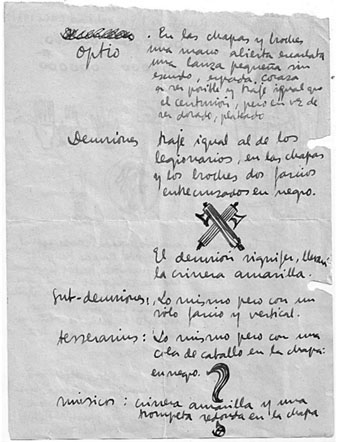 optio . En las chapas y broches
una mano abierta
una lanza pequeña sin
escudo, espada, coraza
a ser posible y traje igual que
el centurión, pero en vez de
ser dorado, plateado
Decuriones traje igual al de los
legionarios, en las chapas
y los broches dos fascios
entrecruzados en negro.
El decurión signifer, llevará
la crinera amarilla.
Sub-decuriones: Lo mismo pero con un
sólo fascio y vertical.
tesserarius: Lo mismo pero con una
cola de caballo en la chapa:
en negro.
músicos: crinera amarilla y una
trompeta redonda en la chapa